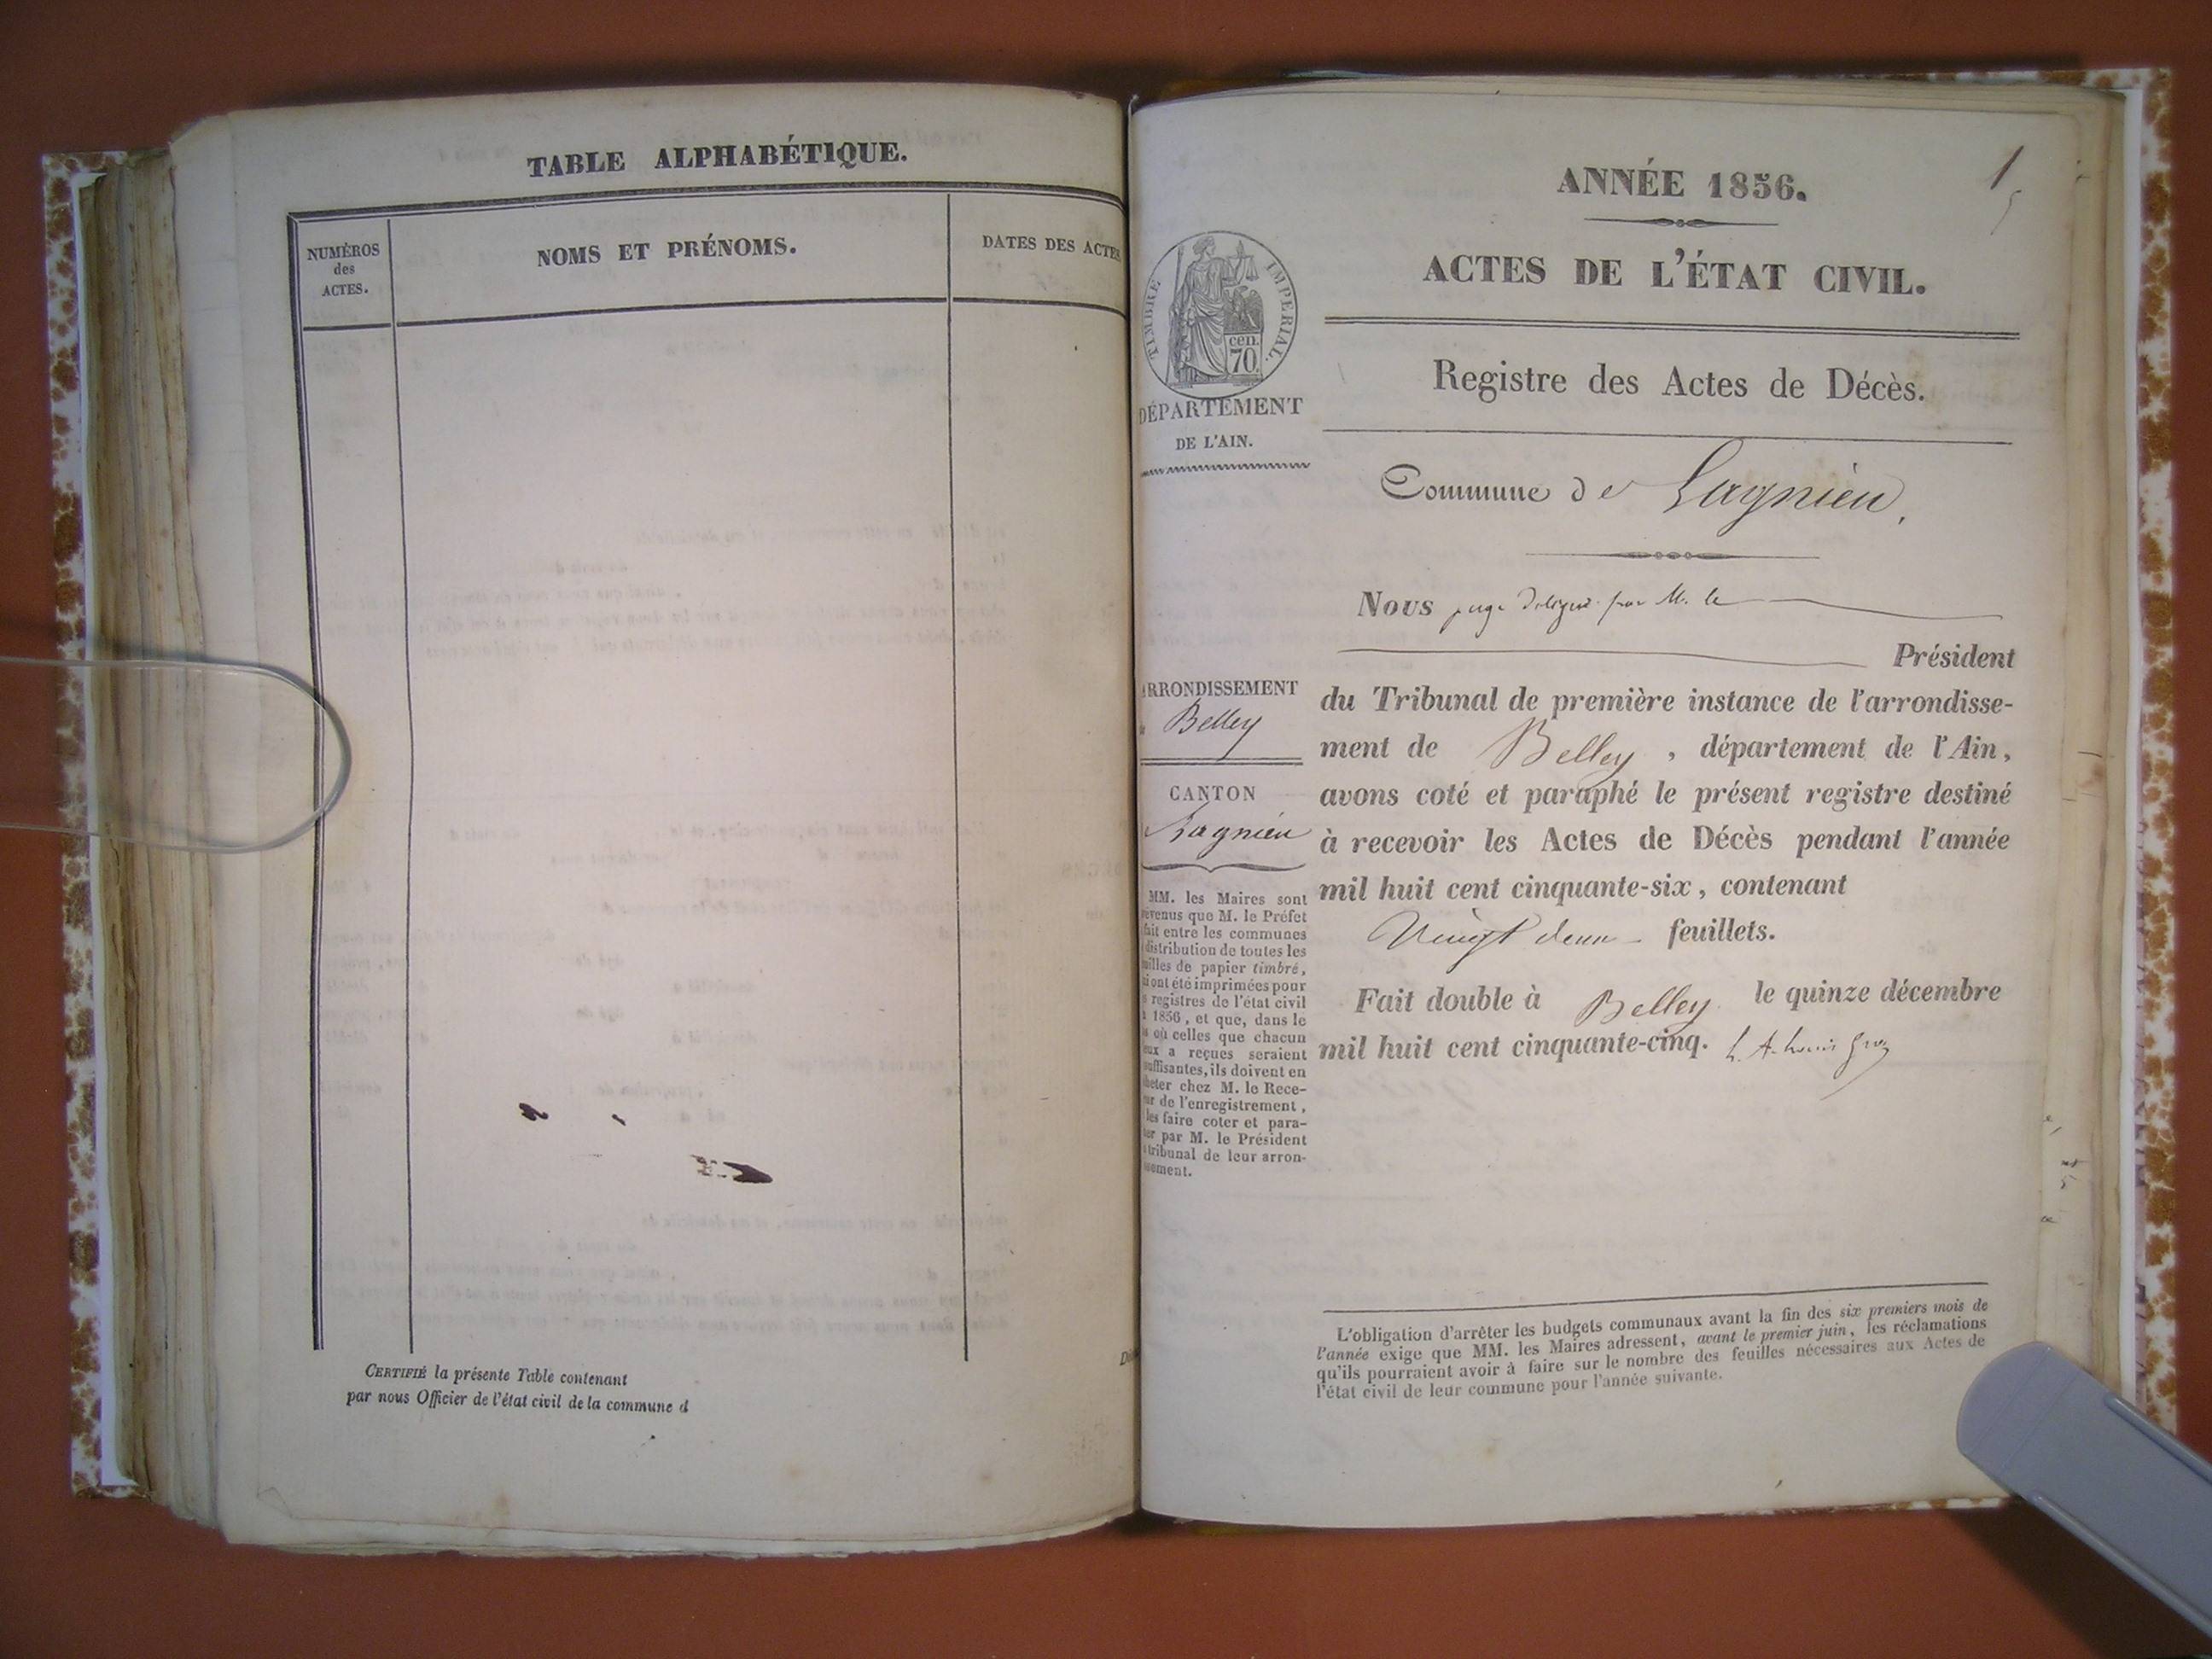 TABLE ALPHABÉTIQUE.
NUMÉROS
des
ACTES.
NOMS ET PRÉNOMS.
DATES DES ACTES
CERTIFIÉ la présente Table contenant
par nous Officier de l'état civil de la commune d
1
ANNÉE 1856.
ACTES DE L'ÉTAT CIVIL.
TIMBRE IMPERIAL.
cen.
70.
DÉPARTEMENT
DE L'AIN.
Registre des Actes de Décès.
Commune de Lagnieu,
Nous juge délégué par M. le
Président
du Tribunal de première instance de l'arrondisse-
ment de Belley, département de l'Ain,
avons coté et paraphé le présent registre destiné
à recevoir les Actes de Décès pendant l'année
mil huit cent cinquante-six, contenant
Vingt deux feuillets.
Fait double à Belley le quinze décembre
mil huit cent cinquante-cinq.
ARRONDISSEMENT
Belley
CANTON
Lagnieu
MM. les Maires sont
evenus que M. le Préfet
fait entre les communes
distribution de toutes les
uilles de papier timbré,
i ont été imprimées pour
s registres de l'état civil
1856, et que, dans le
s où celles que chacun
eux a reçues seraient
uffisantes, ils doivent en
heter chez M. le Rece-
ur de l'enregistrement,
les faire coter et para-
her par M. le Président
tribunal de leur arron-
sement.
L'obligation d'arrêter les budgets communaux avant la fin des six premiers mois de
l'année exige que MM. les Maires adressent, avant le premier juin, les réclamations
qu'ils pourraient avoir à faire sur le nombre des feuilles nécessaires aux Actes de
l'état civil de leur commune pour l'année suivante.